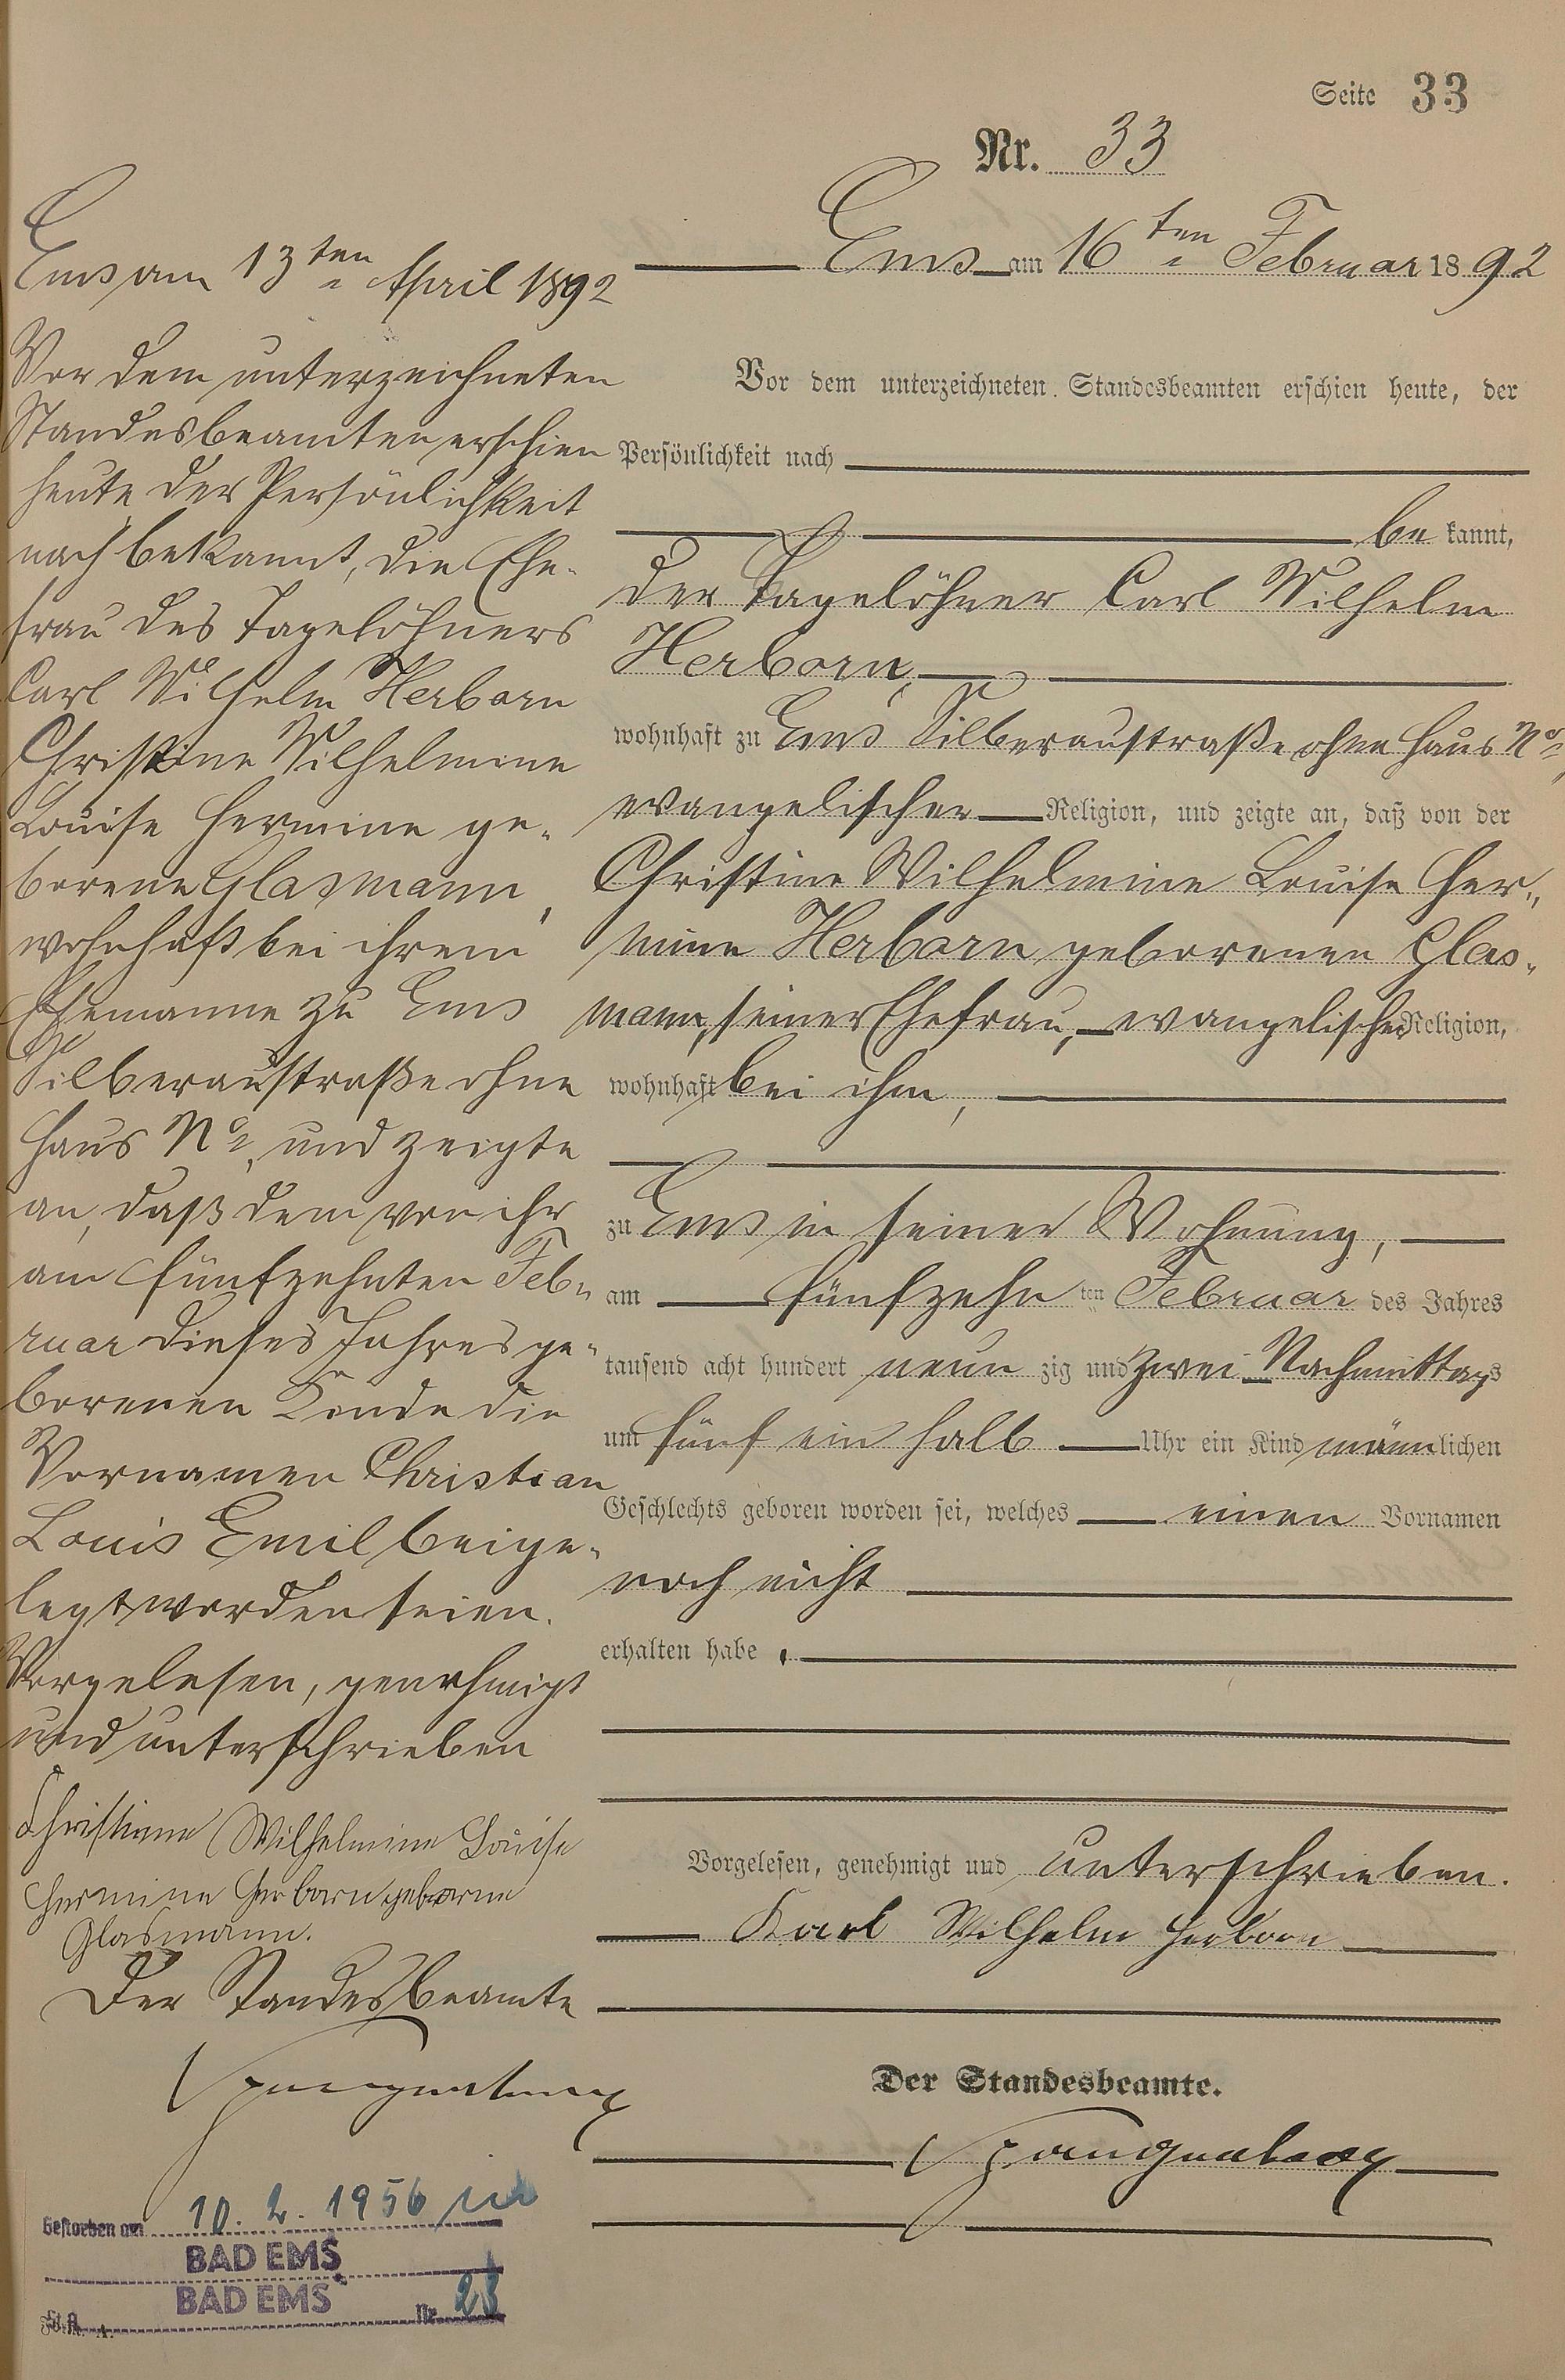 Seite 33
Nr. 33
Ems am 16ten Februar 1892
Vor dem unterzeichneten Standesbeamten erschien heute, der
Persönlichkeit nach
be kannt,
der Tagelöhner Carl Wilhelm
Herborn,
wohnhaft zu Ems Silberaustraße ohne Haus No,
evangelischer Religion, und zeigte an, daß von der
Christine Wilhelmine Louise Her-
mine Herborn geborenen Glas-
mann, seiner Ehefrau, evangelischer Religion,
wohnhaft bei ihm,
zu Ems in seiner Wohnung,
am fünfzehn ten Februar des Jahres
tausend acht hundert neun zig und zwei Nachmittags
um fünf ein halb Uhr ein Kind männlichen
Geschlechts geboren worden sei, welches einen Vornamen
noch nicht
erhalten habe.
Vorgelesen, genehmigt und unterschrieben.
Karl Wilhelm Herborn
Der Standesbeamte.
Ems am 13ten April 1892
Vor dem unterzeichneten
Standesbeamten erschien
heute der Persönlichkeit
nach bekannt, die Ehe-
frau des Tagelöhners
Carl Wilhelm Herborn
Christine Wilhelmine
Louise Hermine ge-
borene Glasmann,
wohnhaft bei ihrem
Ehemanne zu Ems
Silberaustraße ohne
Haus No, und zeigte
an, daß dem von ihr
am fünfzehnten Feb-
ruar dieses Jahres ge-
borenen Kinde die
Vornamen Christian
Louis Emil beige-
legt worden seien.
Vorgelesen, genehmigt
und unterschrieben
Christiane Wilhelmine Louise
Hermine Herborn geborne
Glasmann.
Der Standesbeamte
Gestorben am 10. 2. 1956 in
BAD EMS
St. A. BAD EMS Nr. 28